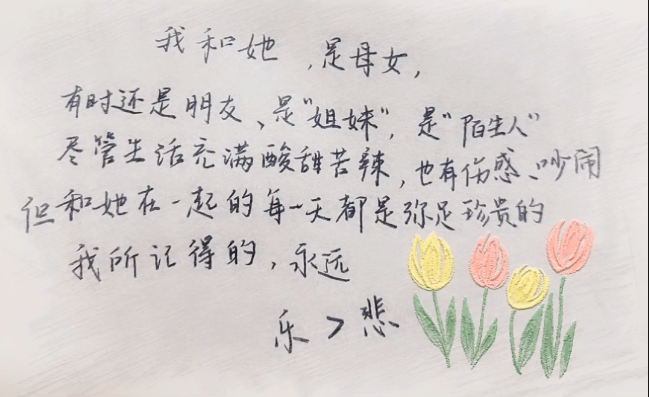 我和她，是母女，
有时还是朋友、是“姐妹”，是“陌生人”
尽管生活充满酸甜苦辣，也有伤感、吵闹
但和她在一起的每一天都是弥足珍贵的
我所记得的，永远
乐＞悲